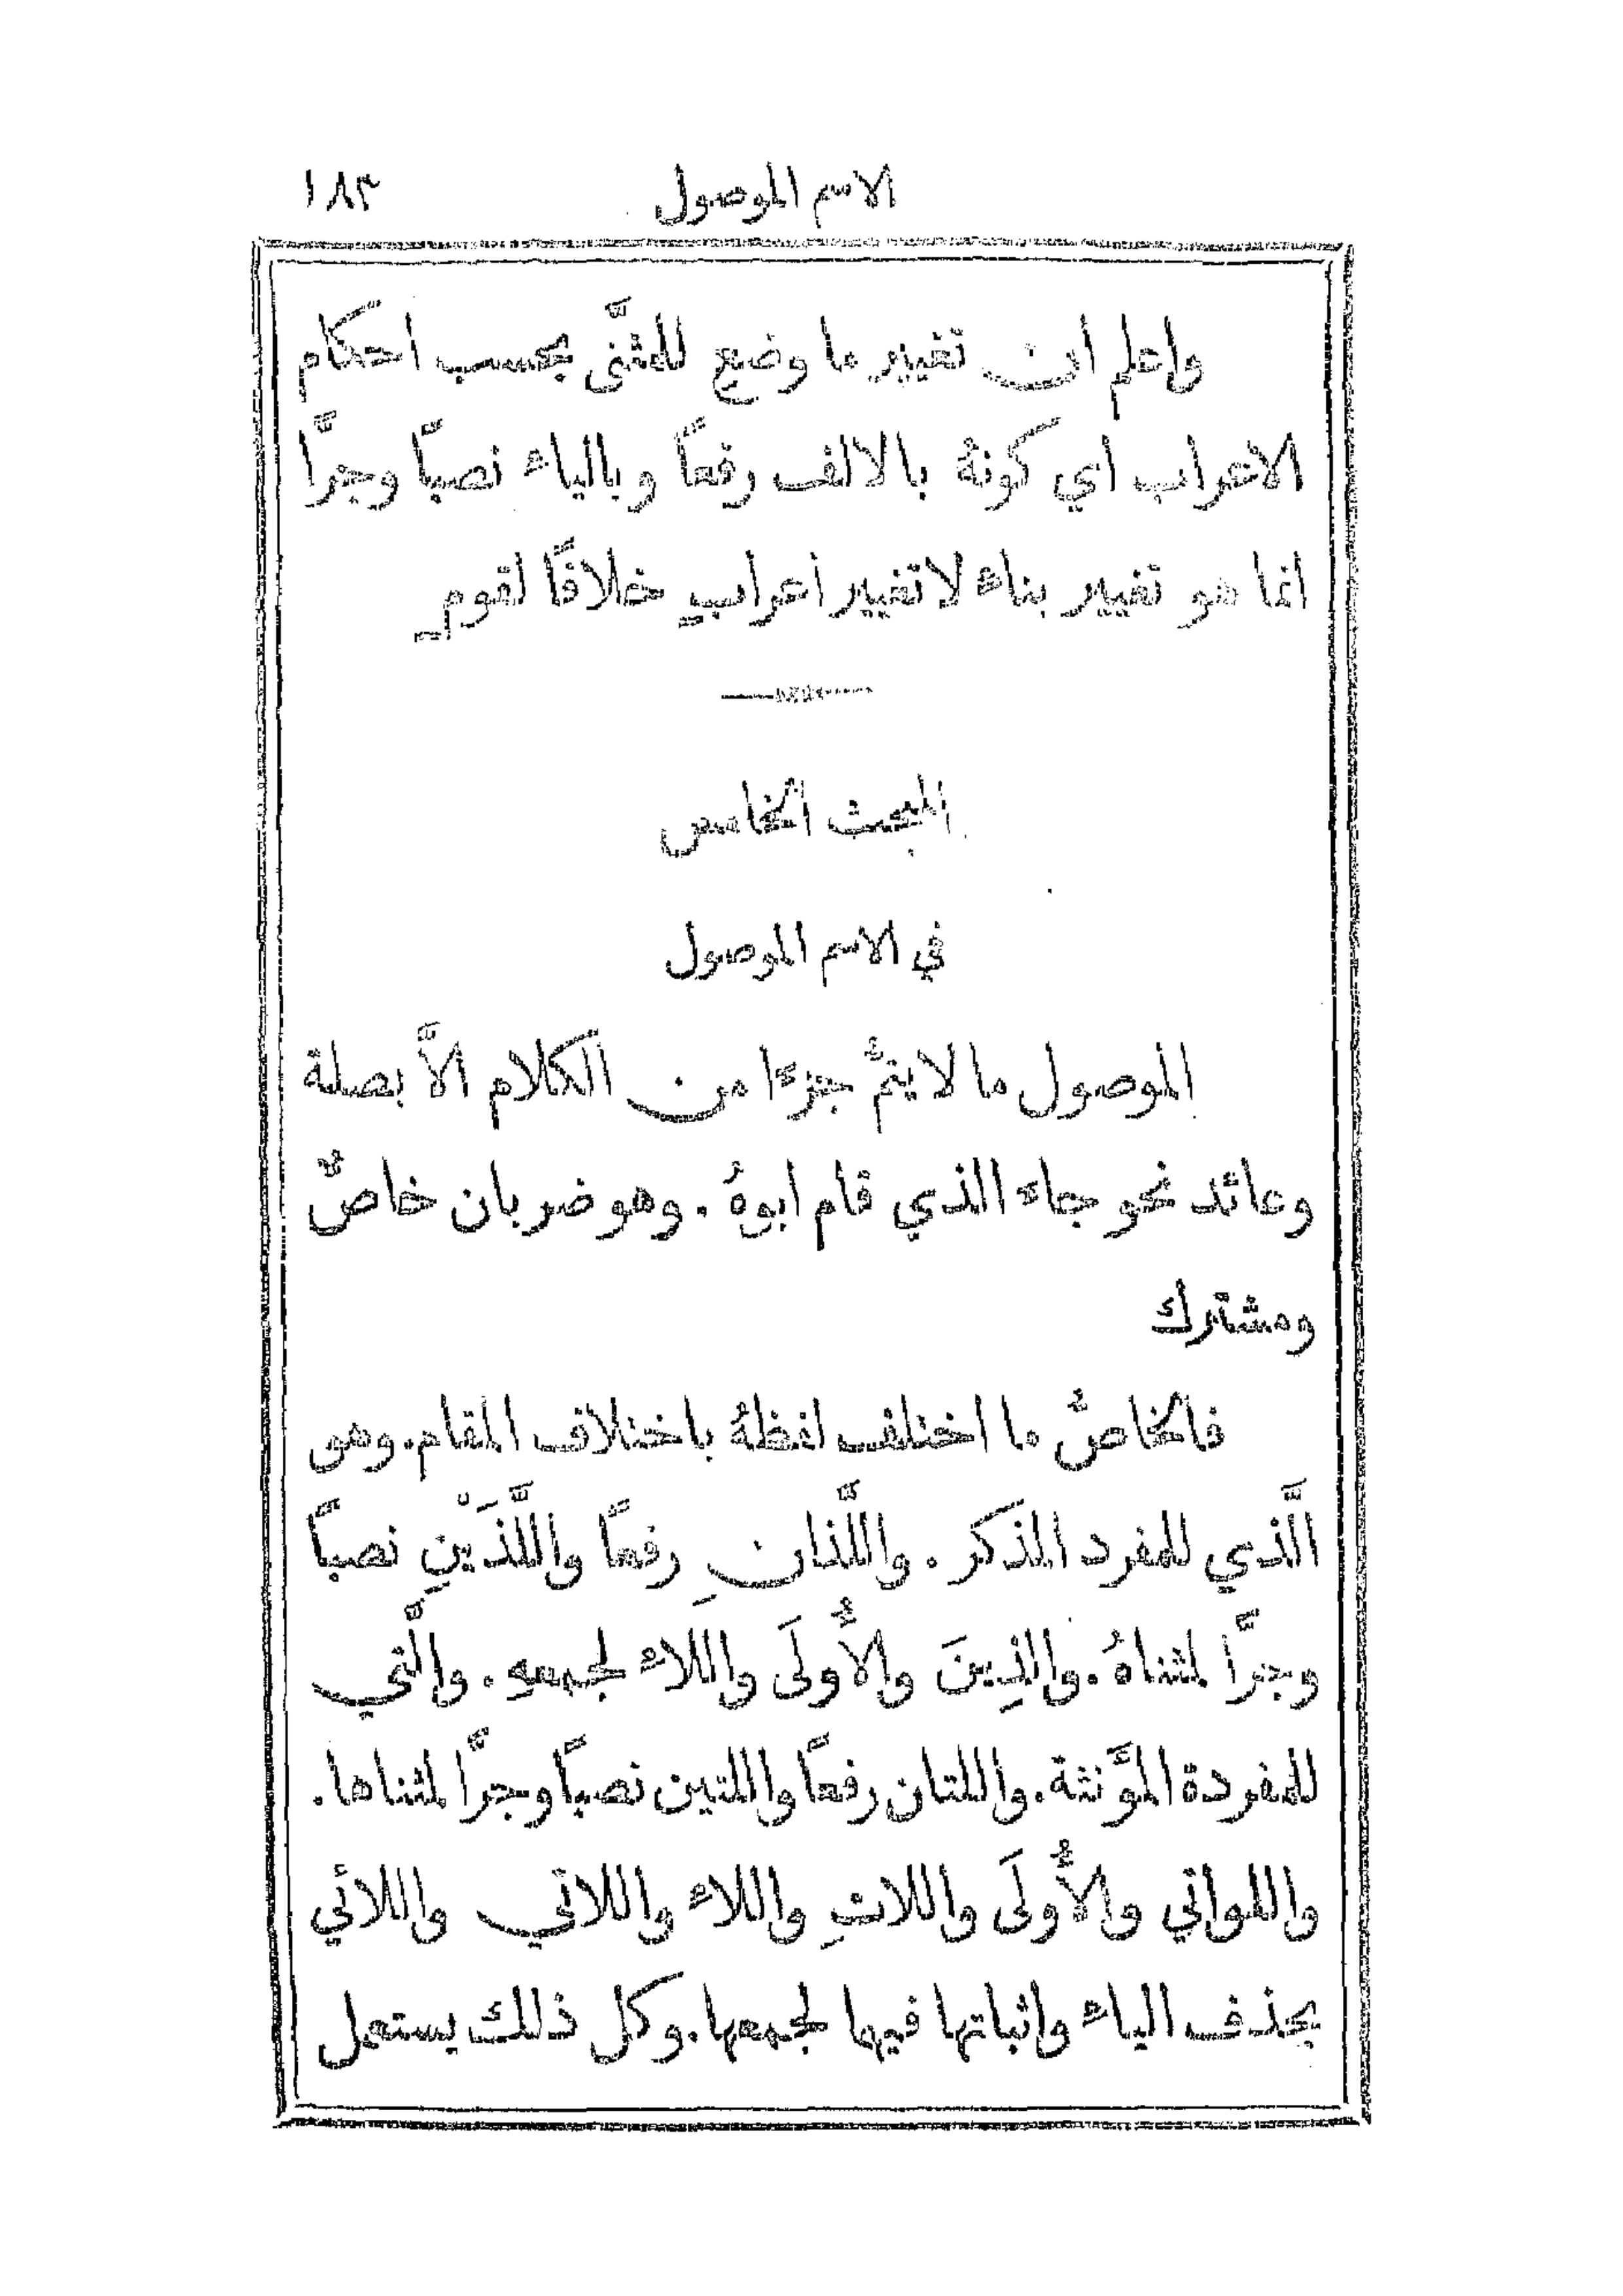 الاسم الموصول ١٨٣
واعلم ان تغيير ما وضع للمثنَّى بحسب احكام
الاعراب اي كونهُ بالالف رفعًا وبالياء نصبًا وجرًّا
انما هو تغيير بناء لا تغيير اعرابٍ خلافًا لقومٍ
المبحث الخامس
في الاسم الموصول
الموصول ما لا يتمُّ جزءًا من الكلام الاَّ بصلة
وعائد نحو جاء الذي قام ابوهُ . وهو ضربان خاصٌّ
ومشترك
فالخاصُّ ما اختلف لفظهُ باختلاف المقام . وهو
الَّذي للمفرد المذكر . واللَّذانِ رفعًا واللَّذَيْنِ نصبًا
وجرًّا لمثناهُ . والذِينَ والأُولَى واللاء لجمعهِ . والَّتي
للمفردة المؤَنثة . واللتان رفعًا واللتين نصبًا وجرًّا لمثناها .
واللواتي والأُولَى واللاتِ واللاء واللاتي واللائي
بحذف الياء واثباتها فيهما لجمعها . وكل ذلك يستعمل